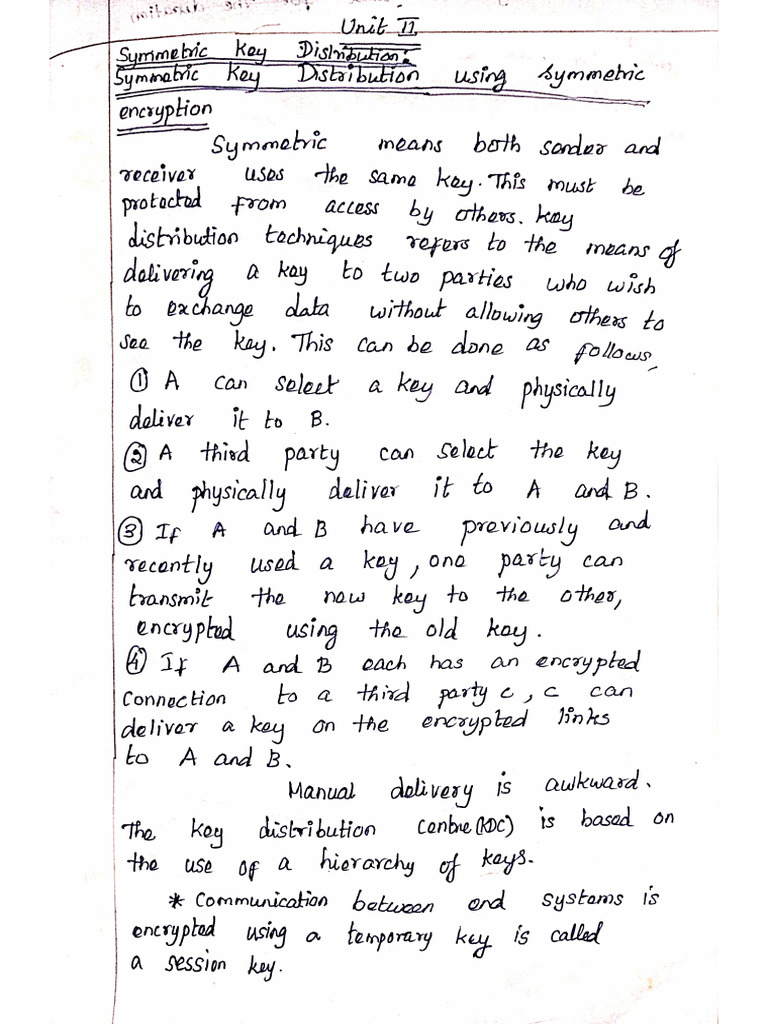 Unit II.
Symmetric Key Distribution:
Symmetric Key Distribution using Symmetric
encryption
Symmetric means both sender and
receiver uses the same key. This must be
protected from access by others. Key
distribution techniques refers to the means of
delivering a key to two parties who wish
to exchange data without allowing others to
see the key. This can be done as follows,
① A can select a key and physically
deliver it to B.
② A third party can select the key
and physically deliver it to A and B.
③ If A and B have previously and
recently used a key, one party can
transmit the new key to the other,
encrypted using the old key.
④ If A and B each has an encrypted
connection to a third party c, c can
deliver a key on the encrypted links
to A and B.
Manual delivery is awkward.
The key distribution Centre(KDC) is based on
the use of a hierarchy of keys.
* Communication between end systems is
encrypted using a temporary key is called
a session key.